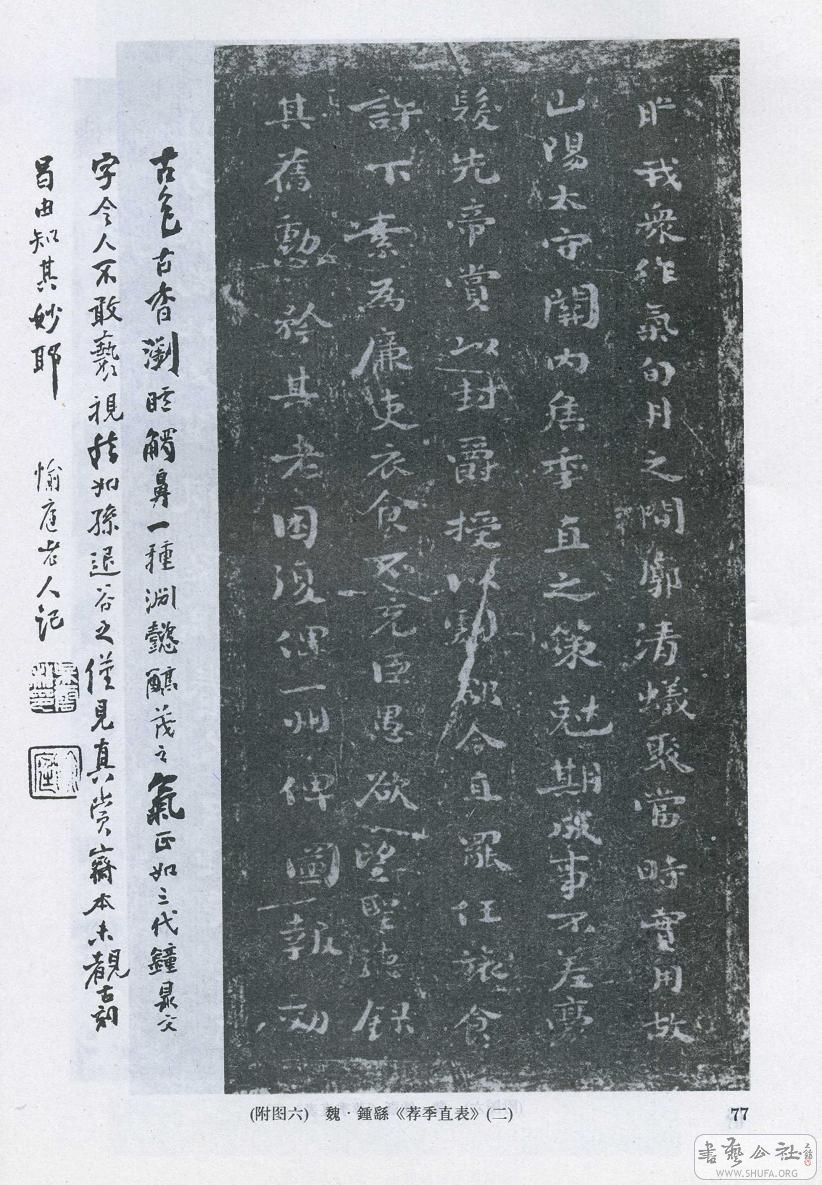 胆我衆作氣旬月之間廓清蟻聚當時實用故
山陽太守關內侯季直之策尅期成事不差豪
髮先帝賞以封爵授以劇郡今直罷任旅食
許下素為廉吏衣食不充臣愚欲望聖德錄
其舊勳矜其老困復俾一州俾圖報効
古色古香瀏眶觸鼻一種淵懿醲茂之氣正如三代鐘鼎文
字令人不敢褻視然如孫退谷之僅見真賞齋本未覩古刻
曷由知其妙耶
愉庭老人記
(附图六) 魏·鍾繇《荐季直表》(二)
77
書藝公社
WWW.SHUFA.ORG